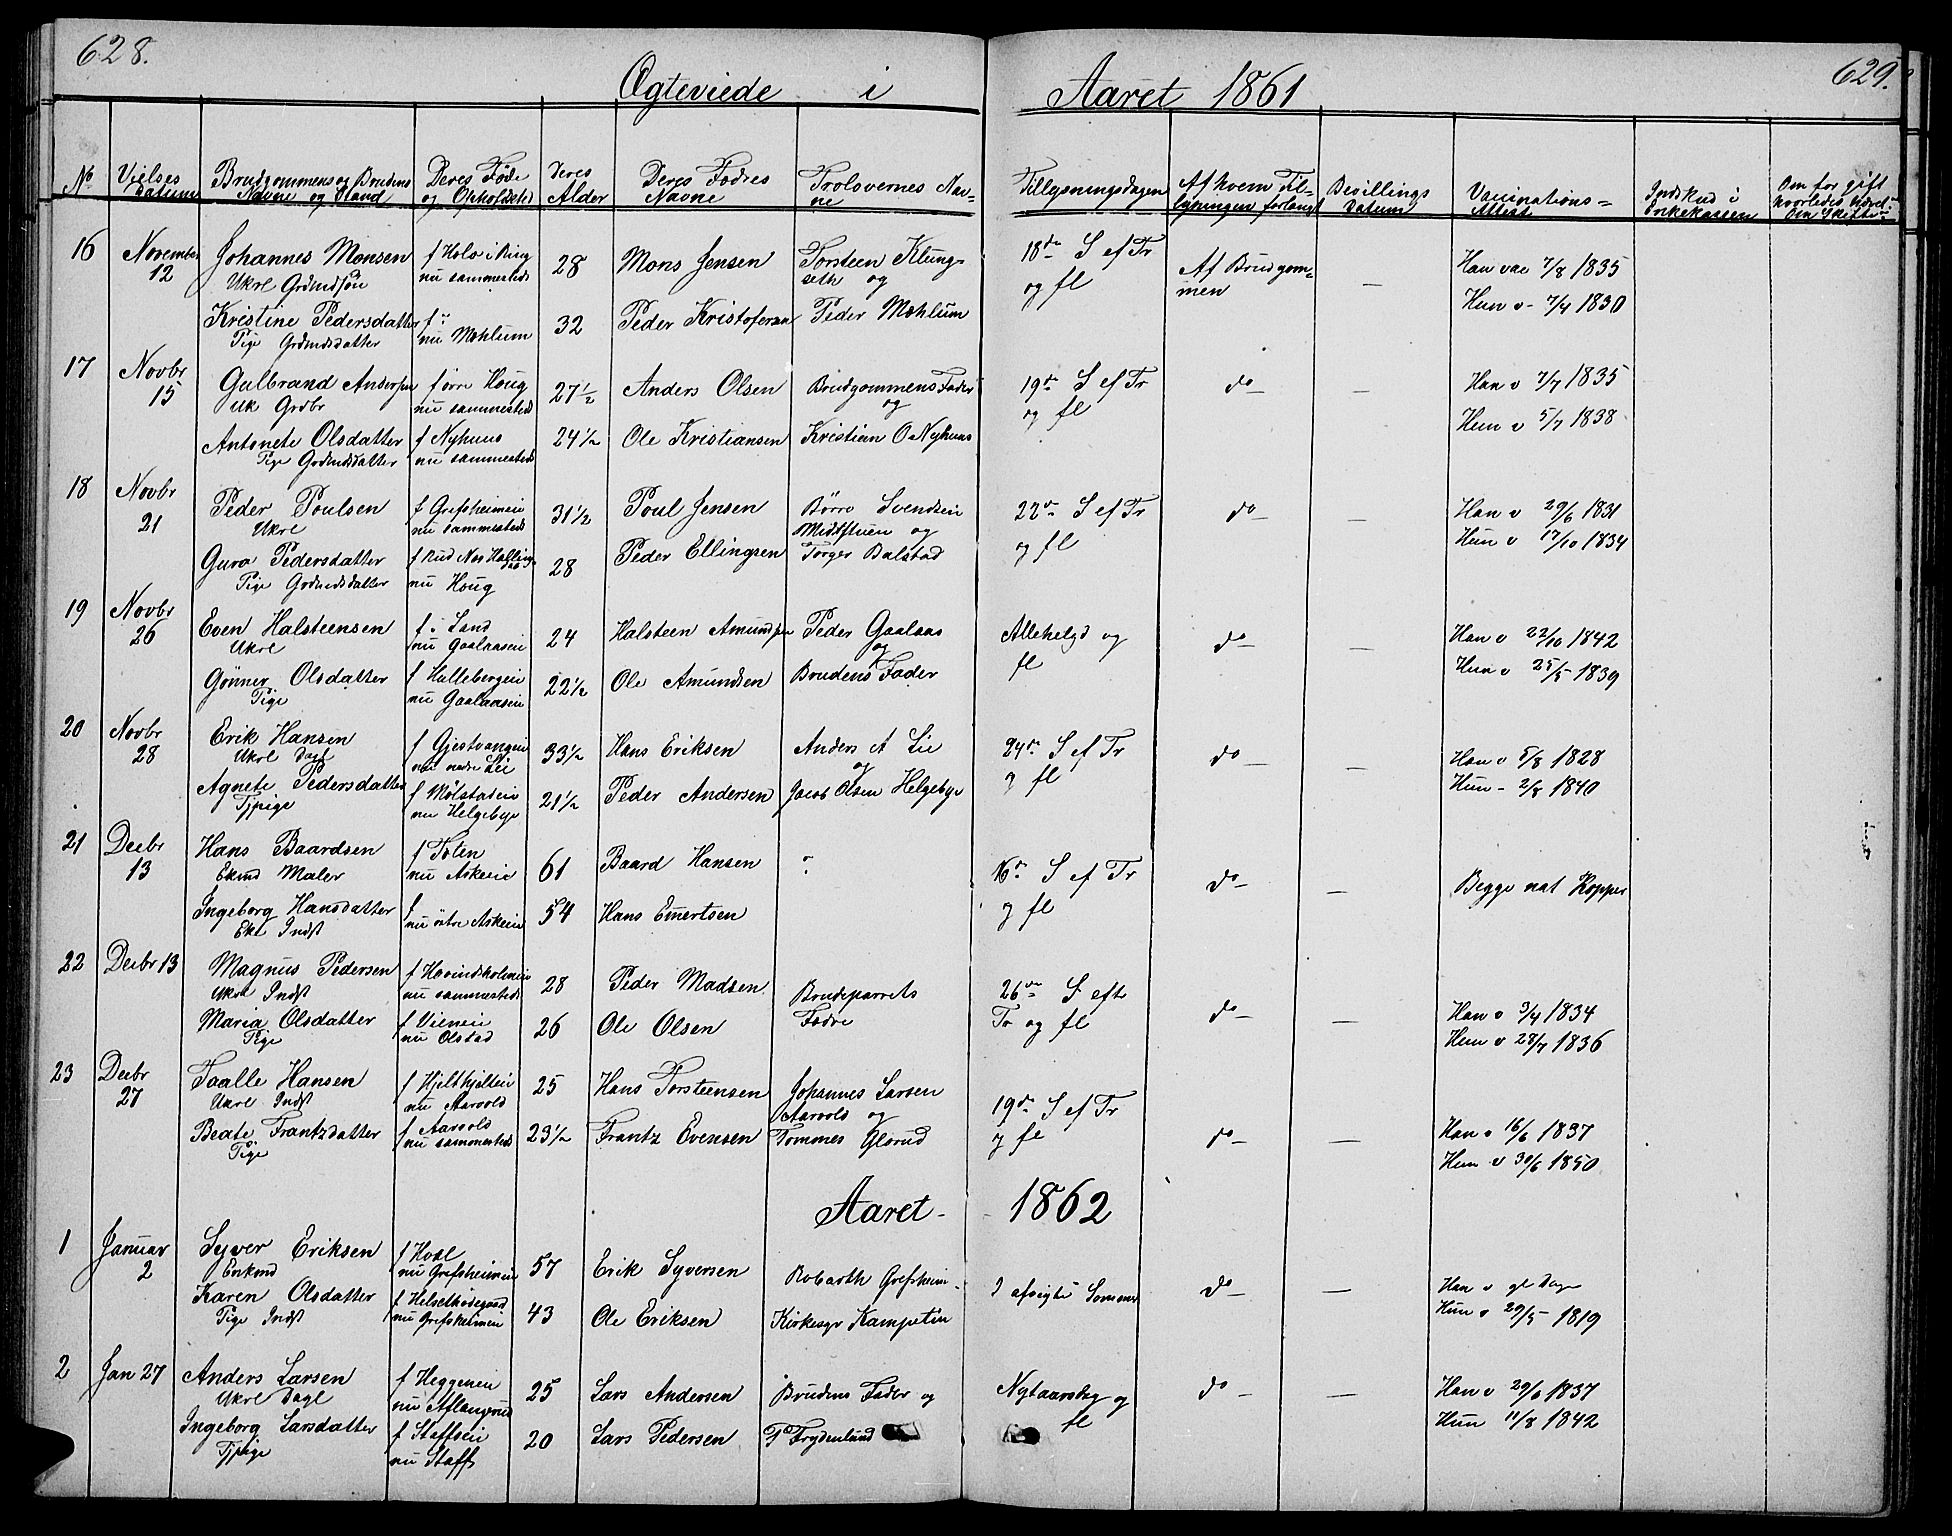 628.
629.
Ægteviede i Aaret 1861
No
Vielses Datum
Brudgommens og Brudens Navne og Stand
Deres Føde og Opholdsted
Deres Alder
Deres Fædres Navne
Trolovernes Navne
Tillysningsdagen
Af hvem Tillysningen forlangt
Bevillings Datum
Vaccinations-Attest
Indskud i Enkekassen
16 November 12
Johannes Monsen
Ukrl Grdmdsön
nu sammesteds
28
Mons Jensen
Torsteen Klungseth og
18de S ef Tr og fl
Af Brudgommen
—
Han vac 7/8 1835
Kristine Pedersdatter
Pige Grdmdsdatter
nu Mæhlum
32
Peder Kristofersen
Peder Mæhlum
Hun v - 7/4 1830
17 Novbr 15
Gulbrand Andersen
Uk Grdbr
f örre Houg
nu sammesteds
27½
Anders Olsen
Brudgommens Fader og
19de S ef Tr og fl
do —
—
Han v 7/7 1835
Antonete Olsdatter
Pige Grdmdsdatter
f Nyhuus
nu sammesteds
24½
Ole Kristiansen
Kristian O Nyhuus
Hun v 5/7 1838
18 Novbr 21
Peder Poulsen
Ukrl
f Grefsheimeie
nu sammesteds
31½
Poul Jensen
Börre Svendsen
Midtstuen og
22de S ef Tr og fl
do —
—
Han v 29/6 1831
Guro Pedersdatter
Pige Grdmdsdatter
f Rud Nes Halling
nu Houg
28
Peder Ellingsen
Torger Balstad
Hun v 17/10 1834
19 Novbr 26
Even Halsteensen
Ukrl
f i Land
nu Gaalaaseie
24
Halsteen Amundsen
Peder Gaalaas og
Allehelgd og fl
do —
—
Han v 22/10 1842
Gönner Olsdatter
Pige
f Hallebergeie
nu Gaalaaseie
22½
Ole Amundsen
Brudens Fader
Hun v 25/5 1839
20 Novbr 28
Erik Hansen
Ukrl Dagl
f Gjestvangeie
nu nedre Lie
33½
Hans Eriksen
Anders A Lie og
24de S ef Tr og fl
do —
—
Han v 5/8 1828
Agnete Pedersdatter
Tjpige
f Mölstadeie
nu Helgebye
21½
Peder Andersen
Jacob Olsen Helgebye
Hun - 2/8 1840
21 Decbr 13
Hans Baardsen
Ekmd Maler
f Toten
nu Askeeie
61
Baard Hansen
16de S ef Tr og fl
do —
—
Begge nat Kopper
Ingeborg Hansdatter
Eke Indst
f
nu östre Askeeie
54
Hans Emertsen
22 Decbr 13
Magnus Pedersen
Ukrl Indst
nu sammesteds
28
Peder Madsen
Brudeparrets Fædre
26de S eft Tr og fl
do —
—
Han v 3/4 1834
Maria Olsdatter
Pige
f Vieneie
nu Olstad
26
Ole Olsen
Hun v 28/7 1836
23 Decbr 27
Taalle Hansen
Ukrl Indst
nu Aarvold
25
Hans Torsteensen
Johannes Larsen
Aarvold og
19de S ef Tr og fl
do —
—
Han v 16/6 1837
Beate Frantzdatter
Pige
f Aarvold
nu sammesteds
23½
Frantz Evensen
Tommes Glorud
Hun v 30/6 1850
Aaret - 1862
1 Januar 2
Syver Eriksen
Enkmd
f Hval
nu Grefsheimeie
57
Erik Syversen
Robarth Grefsheim
I afvigte Sommer
do —
—
Han v gl Dage
Karen Olsdatter
Pige Indst
f Helsethödegaard
nu Grefsheimeie
43
Ole Eriksen
Kirkesgr Kampetin
Hun v 29/5 - 1819
2 Jan 27
Anders Larsen
Ukrl Dagl
f Heggeneie
nu Aflangrud
25
Lars Andersen
Brudens Fader og
Nytaarsdag og fl
do —
—
Han v 29/6 1837
Ingeborg Larsdatter
Tjpige
f Staffseie
nu Staff
20
Lars Pedersen
P Frydenlund
Hun 11/8 1842